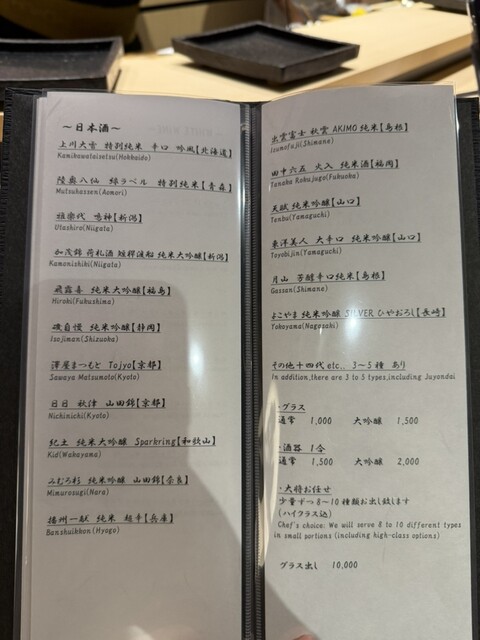 ～日本酒～
上川大雪 特別純米 辛口 吟風【北海道】
Kamikawataisetsu(Hokkaido)
陸奥八仙 緑ラベル 特別純米【青森】
Mutsuhassen(Aomori)
雅楽代 鳴神【新潟】
Utashiro(Niigata)
加茂錦 荷札酒 純米大吟醸【新潟】
Kamonishiki(Niigata)
飛露喜 純米大吟醸【福島】
Hiroki(Fukushima)
磯自慢 純米吟醸【静岡】
Isojiman(Shizuoka)
澤屋まつもと Tojyo【京都】
Sawaya Matsumoto(Kyoto)
日日 秋津 山田錦【京都】
Nichinichi(Kyoto)
紀土 純米大吟醸 Sparkring【和歌山】
Kid(Wakayama)
みむろ杉 純米吟醸 山田錦【奈良】
Mimurosugi(Nara)
播州一献 純米 超辛【兵庫】
Banshuikkon(Hyogo)
出雲富士 秋雲 AKIMO 純米【島根】
Izumofuji(Shimane)
田中六五 火入 純米酒【福岡】
Tanaka Rokujugo(Fukuoka)
天賦 純米吟醸【山口】
Tenbu(Yamaguchi)
東洋美人 大辛口 純米吟醸【山口】
Toyobijin(Yamaguchi)
月山 芳醇辛口純米【島根】
Gassan(Shimane)
よこやま 純米吟醸 SILVER ひやおろし【長崎】
Yokoyama(Nagasaki)
その他十四代 etc.. 3～5種 あり
In addition,there are 3 to 5 types,including Juyondai
・グラス
通常 1,000 大吟醸 1,500
・酒器 1合
通常 1,500 大吟醸 2,000
・大将お任せ
少量ずつ8～10種類お出し致します
(ハイクラス込)
Chef's choice: We will serve 8 to 10 different types
in small portions (including high-class options)
グラス出し 10,000